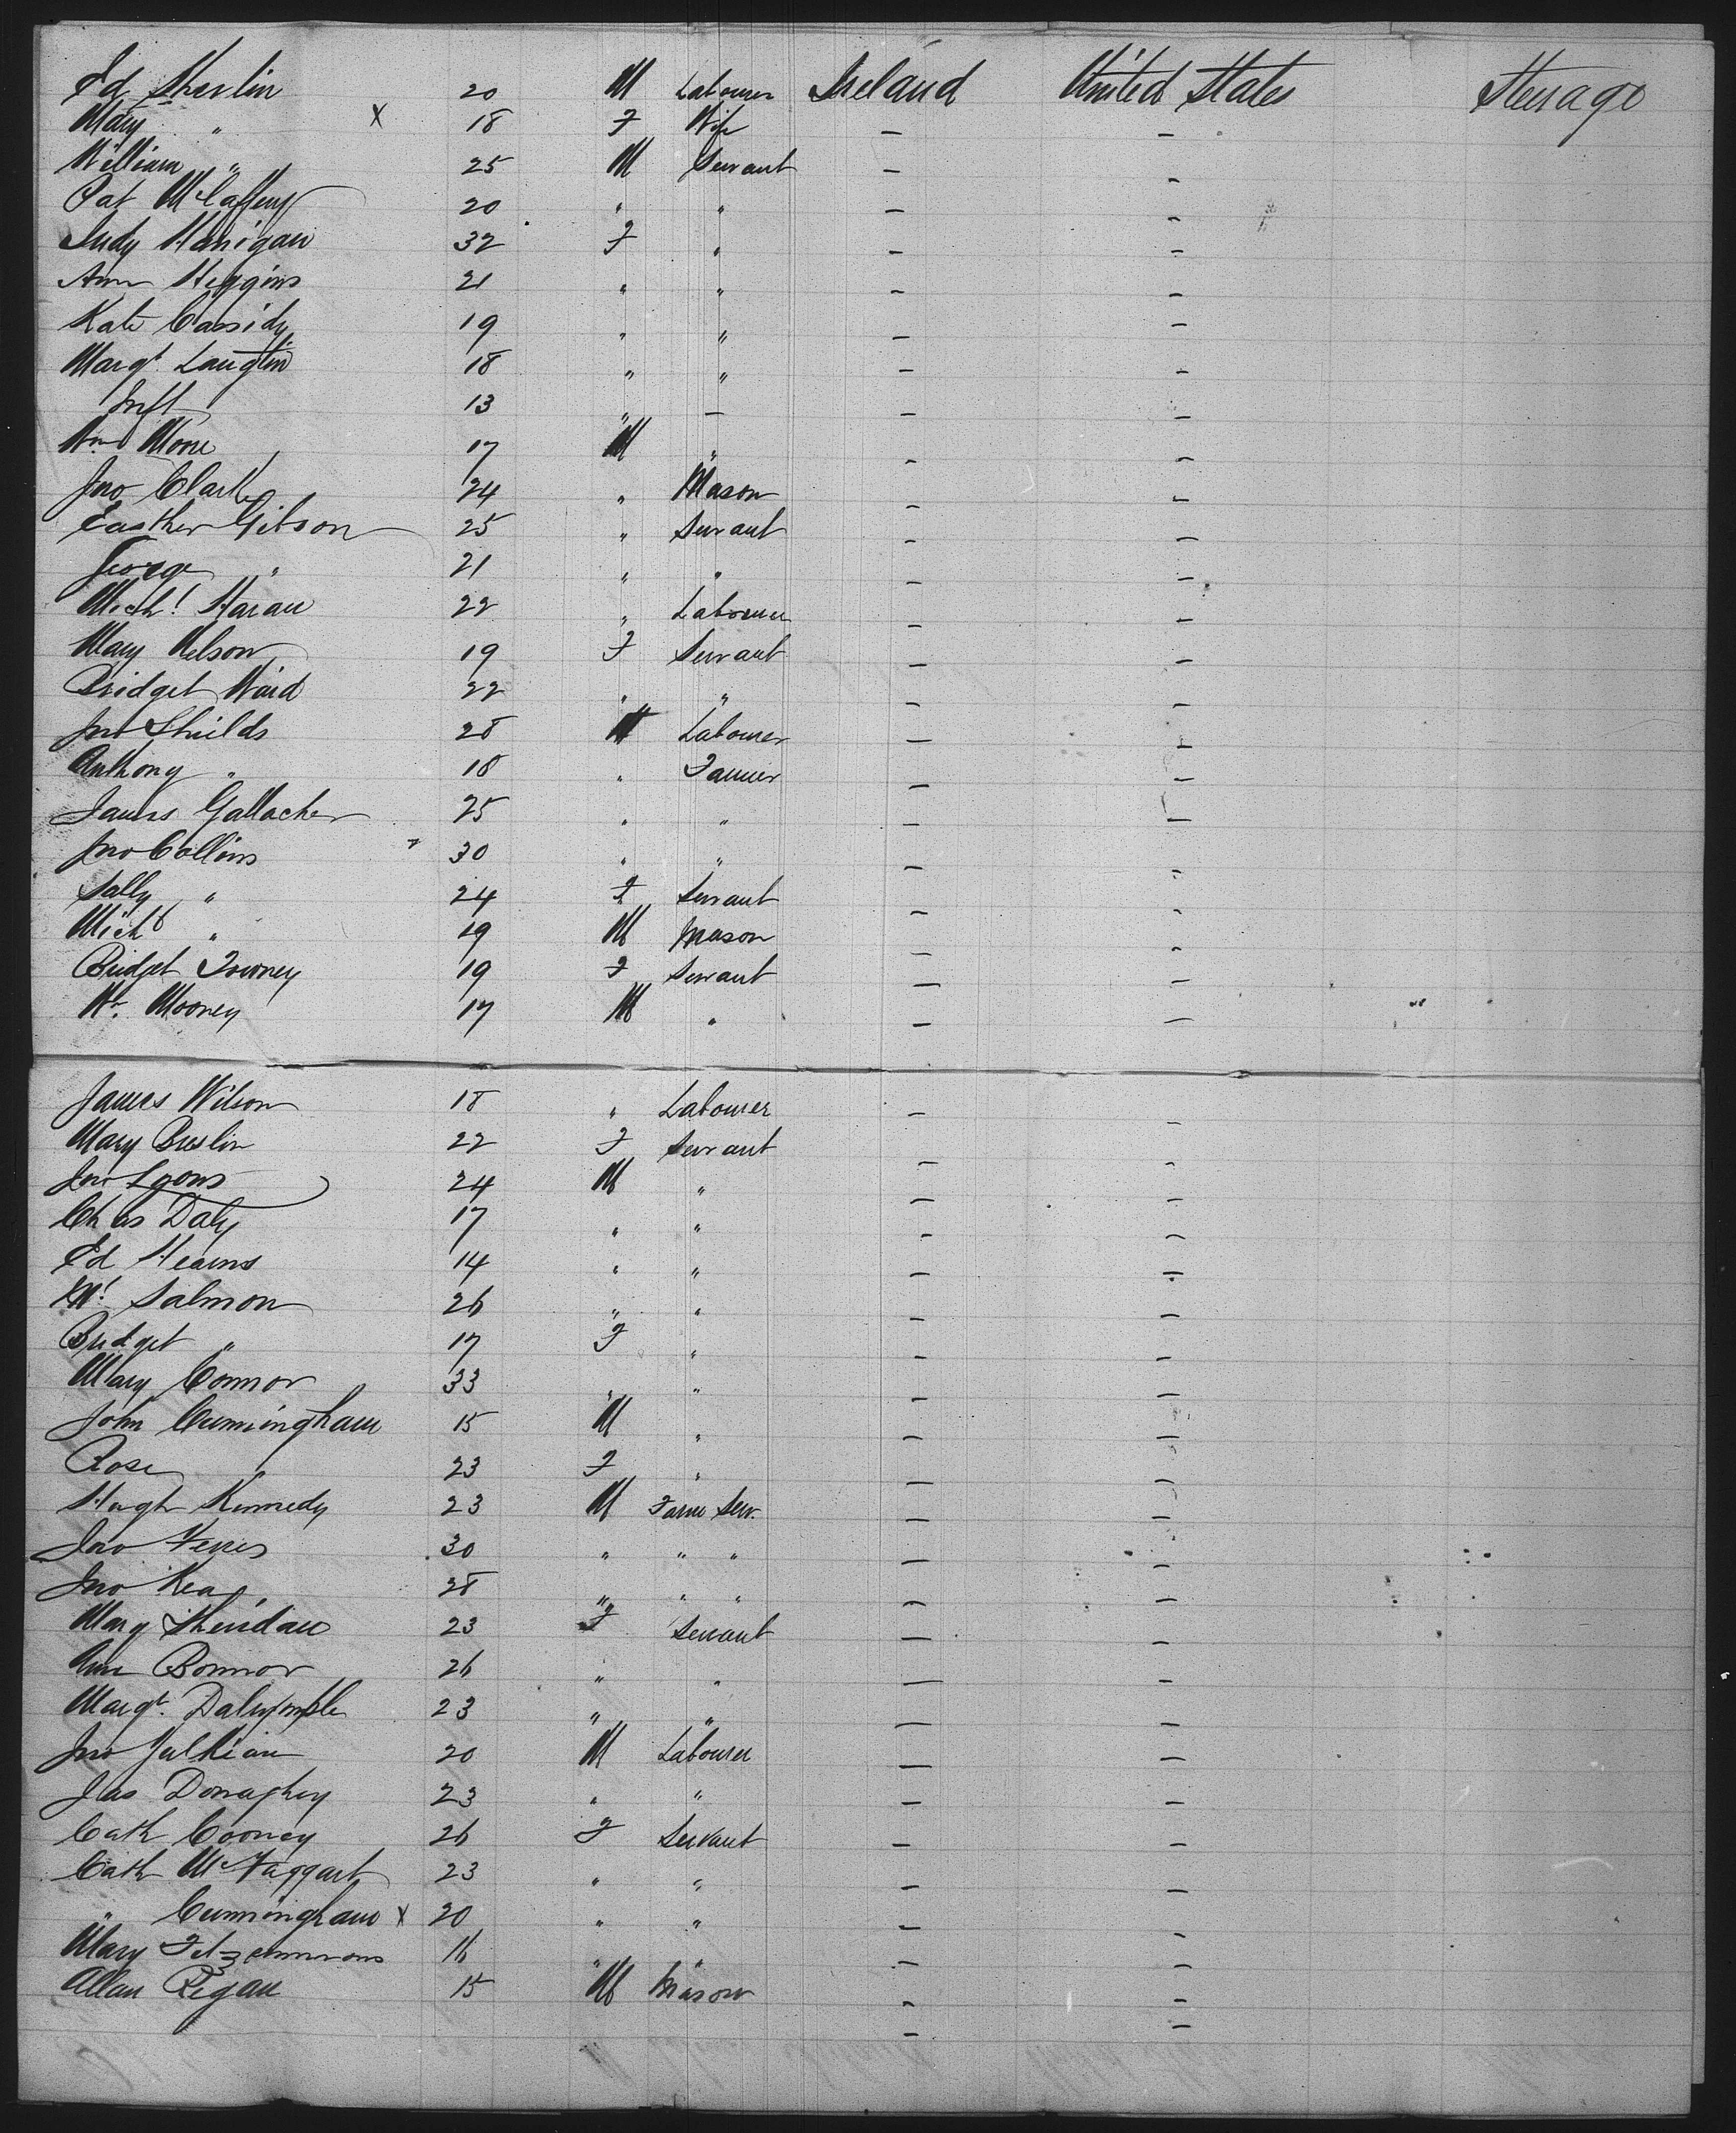 Ed Shevlin 20 M Labourer Ireland United States Steerage
Mary " X 18 F Wife — —
William " 25 M Servant — —
Pat McCaffery 20 " " — —
Judy Hanigan 32 F " — —
Ann Higgins 21 " " — —
Kate Cassidy 19 " " — —
Margt. Laughlin 18 " " — —
Inft 13 " — — —
Wm Moore 17 M " — —
Jno Clark 24 " Mason — —
Easther Gibson 25 " Servant — —
George " 21 " " — —
Michl Haran 22 " Labourer — —
Mary Nelson 19 F Servant — —
Bridget Ward 22 " " — —
Jno Shields 28 M Labourer — —
Anthony " 18 " Farmer — —
James Gallacher 25 " " — —
Jno Collins 30 " " — —
Sally " 24 F Servant — —
Michl " 19 M Mason — —
Bridget 19 F Servant — —
Wm. Mooney 17 M " — —
James Wilson 18 " Labourer — —
Mary Breslin 22 F Servant — —
Jno Lyons 24 M " — —
Chas Daly 17 " " — —
Ed Hearns 14 " " — —
Salmon 26 " " — —
Bridget " 17 F " — —
Mary Connor 33 " " — —
John Cunningham 15 M " — —
Rose 23 F " — —
Hugh Kennedy 23 M Farm Serv. — —
Jno 30 " " " — —
Jno Rea 28 " " " — —
Mary Sheridan 23 F Servant — —
Ann Bonnor 26 " " — —
Margt. Dalrymple 23 " " — —
Jno 20 M Labourer — —
Jas Donaghey 23 " " — —
Cath Cooney 26 F Servant — —
Cath McTaggart 23 " " — —
" Cunningham X 20 " " — —
Mary Fitzsimmons 16 " " — —
Allan Regan 15 M Mason — —